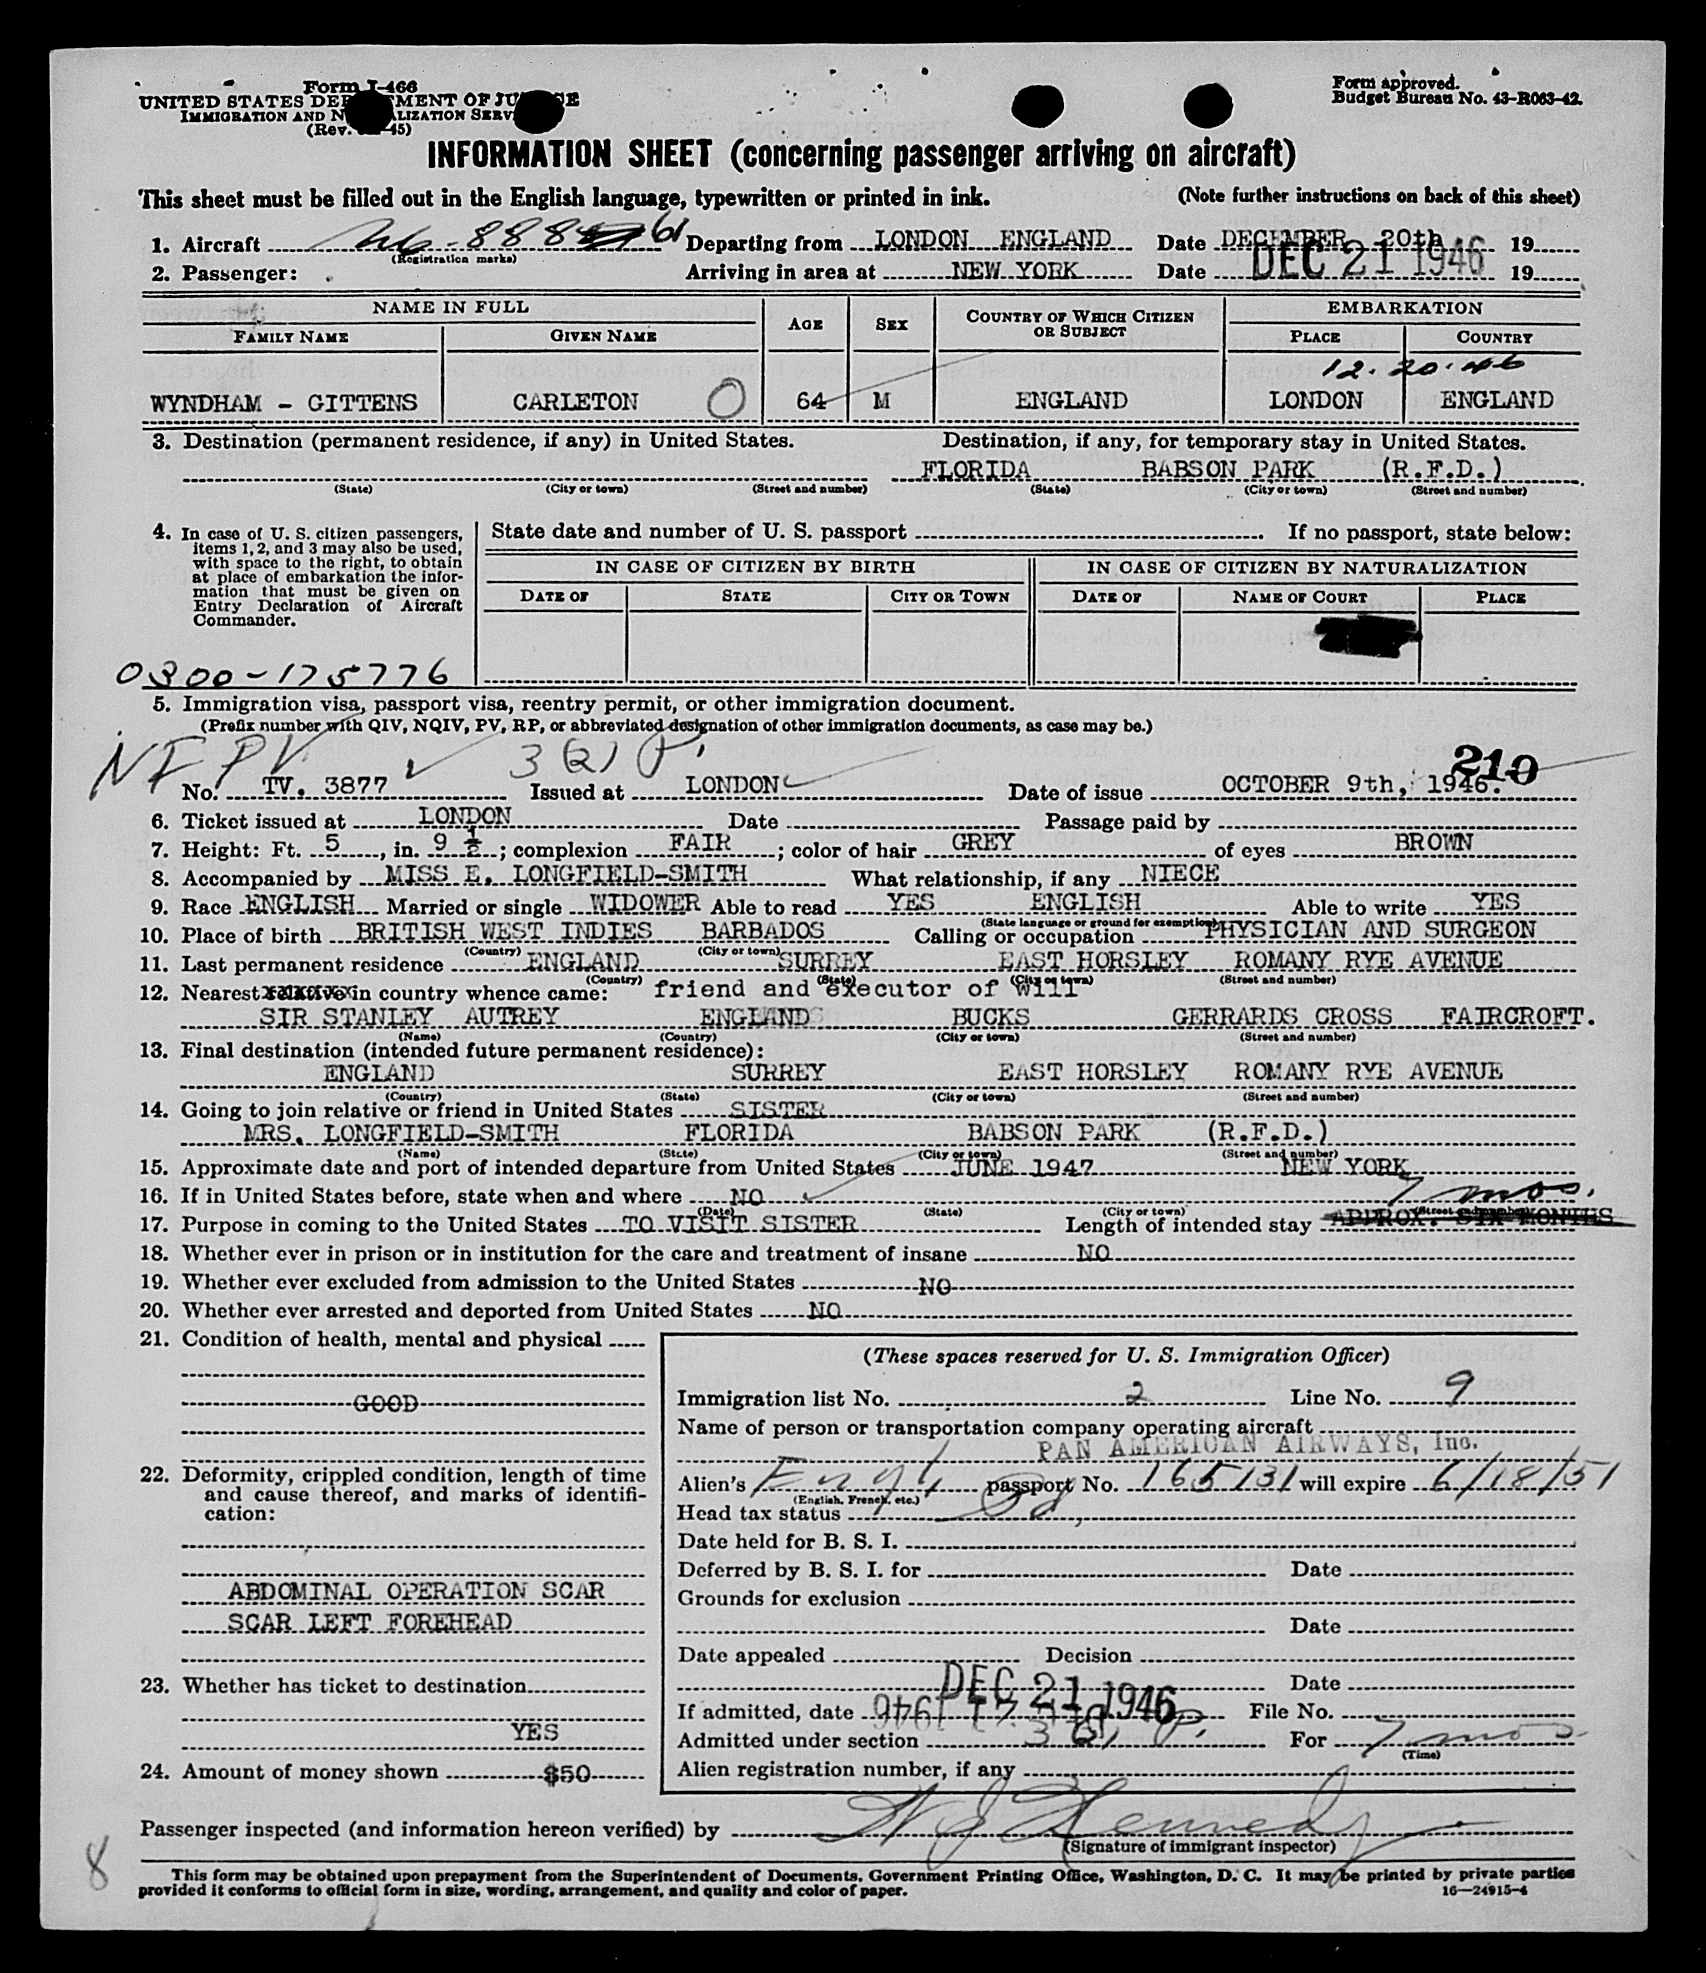 Form I-466
UNITED STATES DEPARTMENT OF JUSTICE
IMMIGRATION AND NATURALIZATION SERVICE
(Rev. -45)
Form approved.
Budget Bureau No. 43-R063-42.
INFORMATION SHEET (concerning passenger arriving on aircraft)
This sheet must be filled out in the English language, typewritten or printed in ink. (Note further instructions on back of this sheet)
1. Aircraft (Registration marks) Departing from LONDON ENGLAND Date DECEMBER 20th 19
2. Passenger: Arriving in area at NEW YORK Date DEC 21 1946 19
NAME IN FULL
FAMILY NAME GIVEN NAME AGE SEX COUNTRY OF WHICH CITIZEN OR SUBJECT EMBARKATION PLACE COUNTRY
12.20.46
WYNDHAM - GITTENS CARLETON O 64 M ENGLAND LONDON ENGLAND
3. Destination (permanent residence, if any) in United States. Destination, if any, for temporary stay in United States.
FLORIDA BABSON PARK (R.F.D.)
(State) (City or town) (Street and number) (State) (City or town) (Street and number)
4. In case of U. S. citizen passengers,
items 1, 2, and 3 may also be used,
with space to the right, to obtain
at place of embarkation the infor-
mation that must be given on
Entry Declaration of Aircraft
Commander.
State date and number of U. S. passport . If no passport, state below:
IN CASE OF CITIZEN BY BIRTH IN CASE OF CITIZEN BY NATURALIZATION
DATE OF STATE CITY OR TOWN DATE OF NAME OF COURT PLACE
0300-175776
5. Immigration visa, passport visa, reentry permit, or other immigration document.
(Prefix number with QIV, NQIV, PV, RP, or abbreviated designation of other immigration documents, as case may be.)
NI PV 3(2) P. 210
No. TV. 3877 Issued at LONDON Date of issue OCTOBER 9th, 1946.
6. Ticket issued at LONDON Date Passage paid by
7. Height: Ft. 5, in. 9 ½; complexion FAIR; color of hair GREY of eyes BROWN
8. Accompanied by MISS E. LONGFIELD-SMITH What relationship, if any NIECE
9. Race ENGLISH Married or single WIDOWER Able to read YES ENGLISH Able to write YES
(State language or ground for exemption)
10. Place of birth BRITISH WEST INDIES BARBADOS Calling or occupation PHYSICIAN AND SURGEON
(Country) (City or town)
11. Last permanent residence ENGLAND SURREY EAST HORSLEY ROMANY RYE AVENUE
(Country) (State) (City or town) (Street and number)
12. Nearest relative in country whence came: friend and executor of will
SIR STANLEY AUTREY ENGLAND BUCKS GERRARDS CROSS FAIRCROFT.
(Name) (Country) (City or town) (Street and number)
13. Final destination (intended future permanent residence):
ENGLAND SURREY EAST HORSLEY ROMANY RYE AVENUE
(Country) (State) (City or town) (Street and number)
14. Going to join relative or friend in United States SISTER
MRS. LONGFIELD-SMITH FLORIDA BABSON PARK (R.F.D.)
(Name) (State) (City or town) (Street and number)
15. Approximate date and port of intended departure from United States JUNE 1947 NEW YORK
16. If in United States before, state when and where NO
(Date) (State) (City or town) (Street and number)
7 mos.
17. Purpose in coming to the United States TO VISIT SISTER Length of intended stay APPROX. SIX MONTHS
18. Whether ever in prison or in institution for the care and treatment of insane NO
19. Whether ever excluded from admission to the United States NO
20. Whether ever arrested and deported from United States NO
21. Condition of health, mental and physical
GOOD
22. Deformity, crippled condition, length of time
and cause thereof, and marks of identifi-
cation:
ABDOMINAL OPERATION SCAR
SCAR LEFT FOREHEAD
23. Whether has ticket to destination
YES
24. Amount of money shown $50
(These spaces reserved for U. S. Immigration Officer)
Immigration list No. 2 Line No. 9
Name of person or transportation company operating aircraft
PAN AMERICAN AIRWAYS, Inc.
Alien's Engl. passport No. 165131 will expire 6/18/51
(English, French, etc.)
Head tax status Pd,
Date held for B. S. I.
Deferred by B. S. I. for Date
Grounds for exclusion
Date
Date appealed Decision
Date
If admitted, date DEC 21 1946 File No.
Admitted under section 3(2) P. For 7 mos
(Time)
Alien registration number, if any
Passenger inspected (and information hereon verified) by W J Kennedy
(Signature of immigrant inspector)
8
This form may be obtained upon prepayment from the Superintendent of Documents, Government Printing Office, Washington, D. C. It may be printed by private parties
provided it conforms to official form in size, wording, arrangement, and quality and color of paper.
16—24915-4